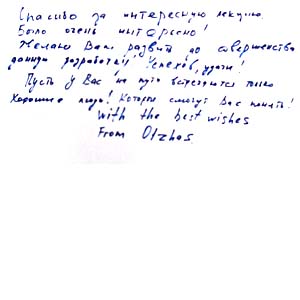 Спасибо за интересную лекцию.
Было очень интересно!
Желаю Вам развить до совершенства
данную разработку! Успехов, удачи!
Пусть у Вас на пути встретятся только
Хорошие люди! Которые смогут Вас понять!
with the best wishes
From Olzhas.